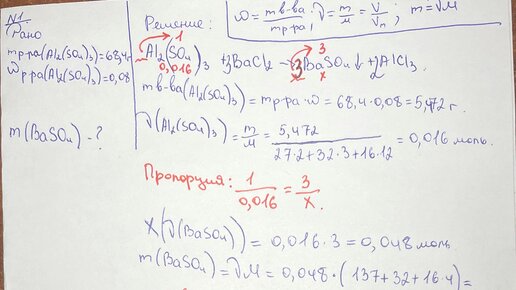 N1.
Дано
mр-ра(Al₂(SO₄)₃)=68,4г
ωр-ра(Al₂(SO₄)₃)=0,08
m(BaSO₄) - ?
Решение:
ω = mв-ва/mр-ра; ν = m/M = V/Vn; m=νM
1 3
Al₂(SO₄)₃ + 3BaCl₂ → 3BaSO₄↓ + 2AlCl₃.
0,016 x
mв-ва(Al₂(SO₄)₃) = mр-ра·ω = 68,4·0,08 = 5,472 г.
ν(Al₂(SO₄)₃) = m/M = 5,472/(27·2+32·3+16·12) = 0,016 моль.
Пропорция: 1/0,016 = 3/x.
x(ν(BaSO₄)) = 0,016·3 = 0,048 моль
m(BaSO₄) = νM = 0,048·(137+32+16·4) =